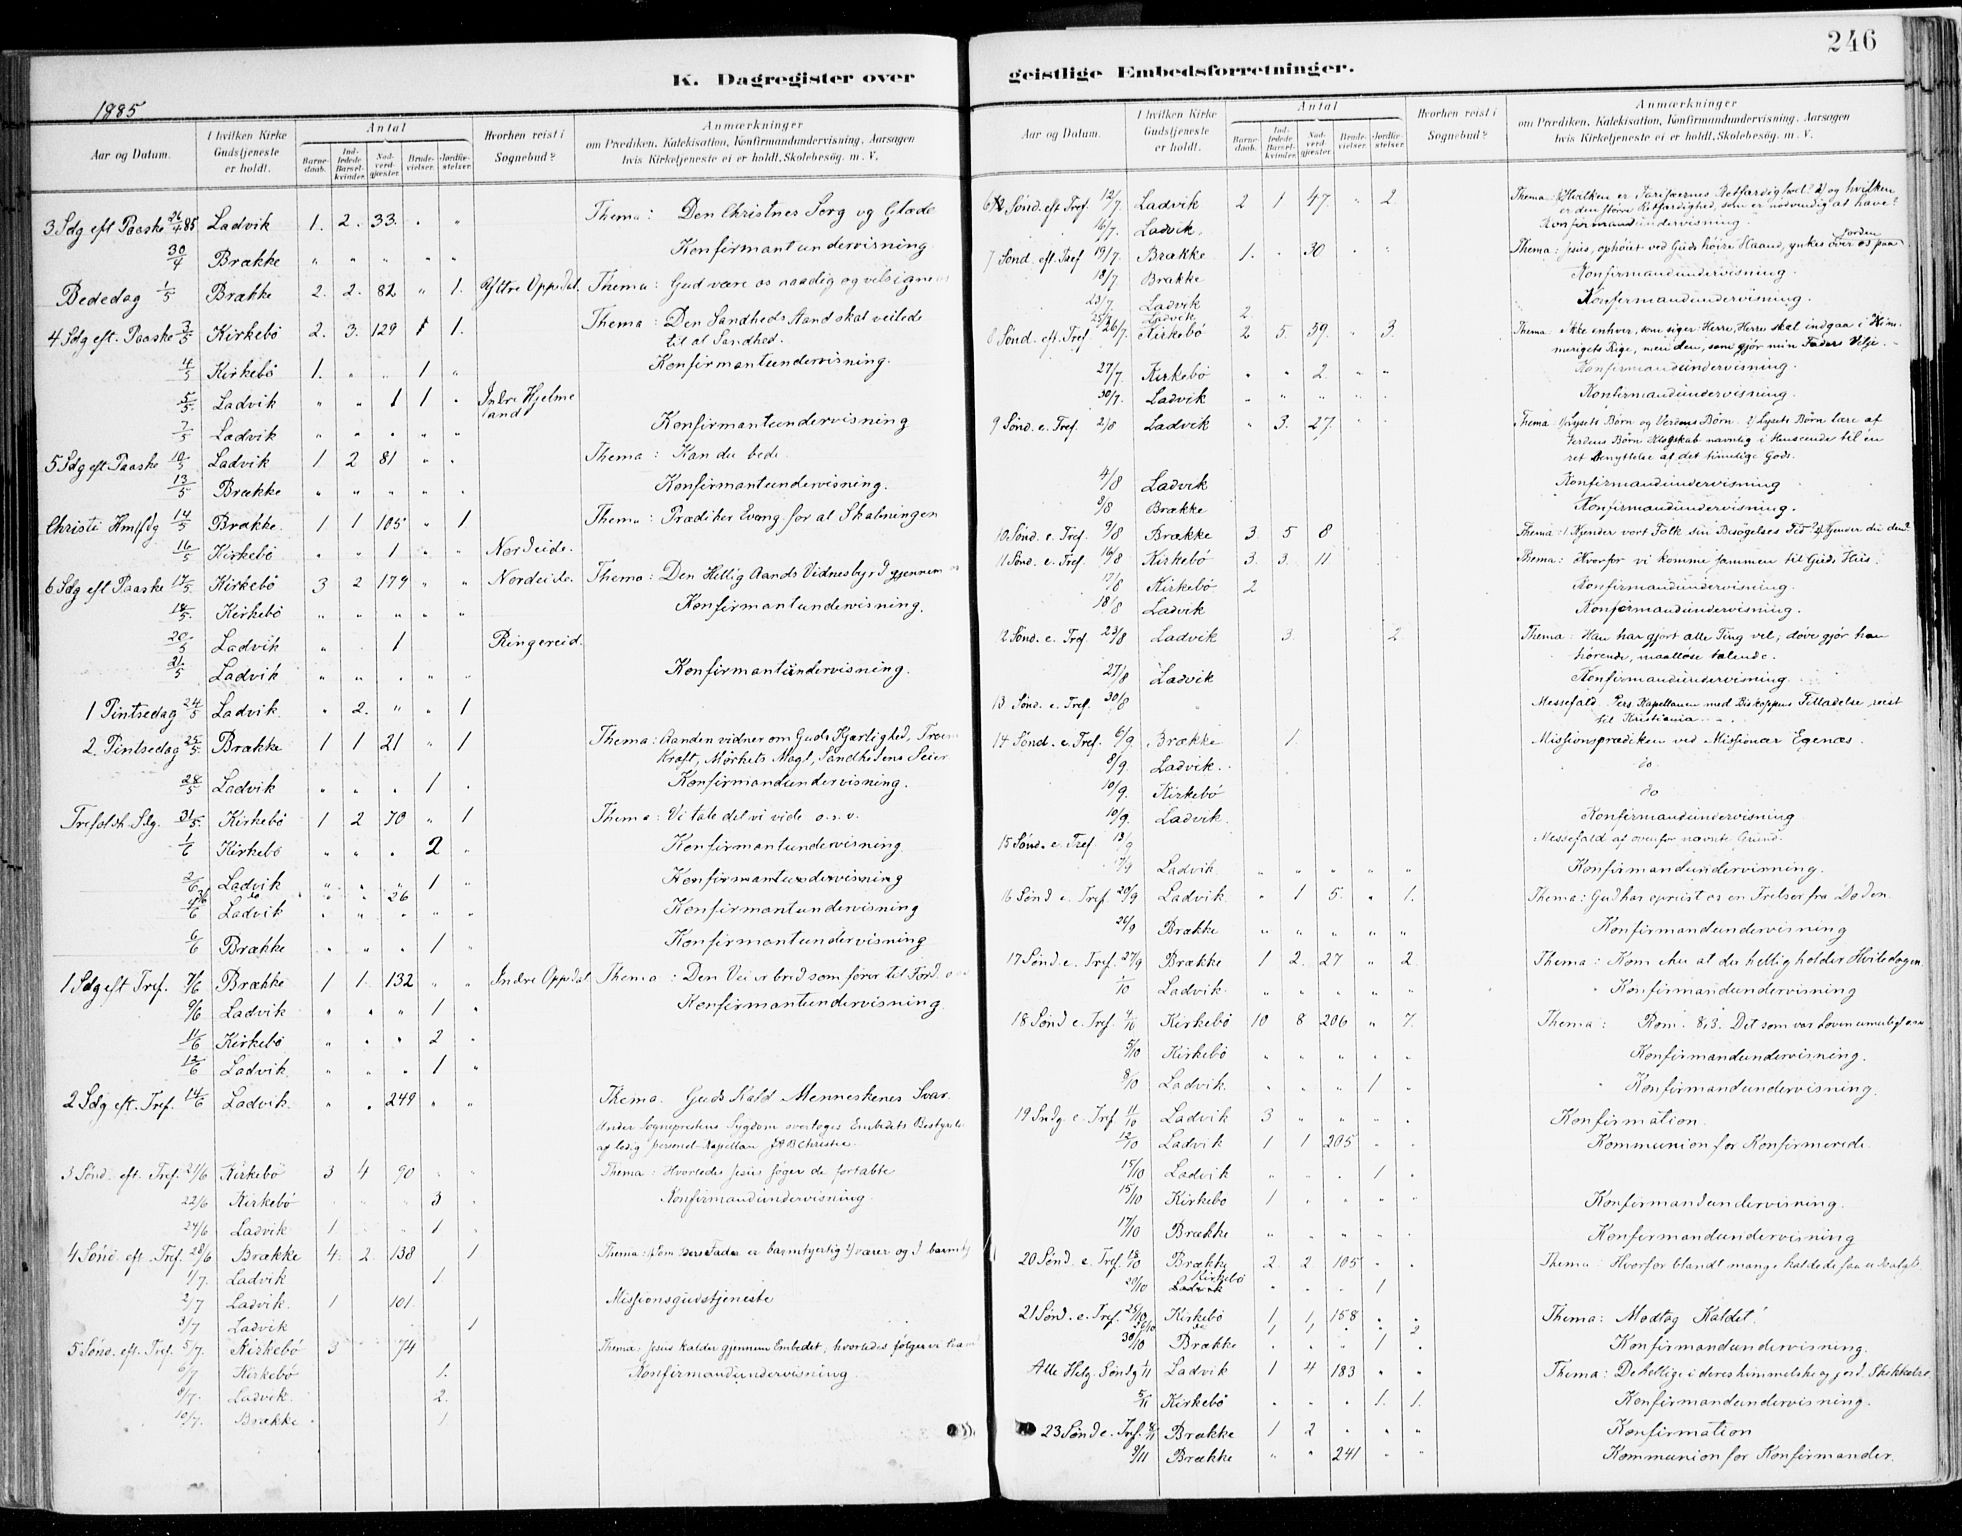 246
K. Dagregister over geistlige Embedsforretninger.
1885
Aar og Datum. | I hvilken Kirke Gudstjeneste er holdt. | Antal | Barnedaab. | Indledede Barselkvinder. | Nadverdgjæster. | Brudevielser. | Jordfæstelser. | Hvorhen reist i Sognebud? | Anmærkninger om Prædiken, Katekisation, Konfirmandundervisning, Aarsagen hvis Kirketjeneste ei er holdt, Skolebesøg. m. V.
3 Sdg eft Paaske 26/4 85 Ladvik 1. 2. 33. " " Thema: Den Christnes Sorg og Glæde
30/4 Brække " " " " " Konfirmantundervisning
Bededag 1/5 Brække 2. 2. 82 " 1. Yttre Oppedal. Thema: Gud være os naadig og velsigne
4 Sdg eft. Paaske 3/5 Kirkebö 2. 3. 129 1 1. Thema: Den Sandheds Aand skal veilede
til al Sandhed.
4/5 Kirkebö 1. " " 1 " Konfirmantundervisning.
5/5 Ladvik " " 1 1 " Indre Hjelme
land
7/5 Ladvik " " " " " Konfirmantundervisning
5 Sdg eft Paaske 10/5 Ladvik 1. 2 81 " " Thema: Kan du bede.
13/5 Brække " " " " " Konfirmantundervisning.
Christi Hmfdg 14/5 Brække. 1 1 105 " 1 Thema: Prædiker Evang for al Skabningen
16/5 Kirkebö " " 1 " " Nordeide.
6 Sdg eft Paaske 17/5 Kirkebö 3 2 179 " " Nordeide. Thema: Den Hellig Aands Vidnesbyrd gjennem
18/5 Kirkebö " " " " " Konfirmantundervisning.
20/5 Ladvik " " 1 Ringereid.
21/5 Ladvik " " " " " Konfirmantundervisning.
1 Pintsedag 24/5 Ladvik " 2. " " 1
2. Pintsedag 25/5 Brække 1 1 21 " 1 Thema: Aanden vidner om Guds Kjærlighed, Troens
Kraft, Mörkets Magt, Sandhedens Seier
28/5 Ladvik " " " 1 " Konfirmandundervisning.
Trefoldh. Sdg. 31/5 Kirkebö 1 2 70 " 1 Thema: Vi tale det vi vide o.s.v.
1/6 Kirkebö " " " 2 " Konfirmantundervisning
2/6 Ladvik " " " 1 " Konfirmantundervisning
do " " 26
4/6 Ladvik " " " " " Konfirmantundervisning
6/6 Brække " " " 1 " Konfirmantundervisning
1 Sdg eft Tref. 7/6 Brække 1 1. 132 " " Indre Oppedal Thema: Den Vei er bred som förer til Ford.
9/6 Ladvik " " " 1 " Konfirmantundervisning
11/6 Kirkebö " " " 2 "
12/6 Ladvik " " " 1 "
2 Sdg eft. Tref. 14/6 Ladvik. " " 249 " " Thema. Guds Kald Menneskenes Svar.
Under Sogneprestens Sygdom overtoges Embedets Bestyrelse
af ledig personel Kapellan Christie.
3 Sönd. eft. Tref. 21/6 Kirkebö 3 4 90 " " Thema: Hvorledes Jesus söger de fortabte
22/6 Kirkebö " " " 3 " Konfirmandundervisning.
24/6 Ladvik 1 " " 1 "
4 Sönd. eft. Tref. 28/6 Brække 4. 2. 138 1 Thema: Som Eders Fader er barmhjertig værer og I barmhj
1/7. Ladvik 1
2/7 Ladvik. 1 101. Missionsgudstjeneste
3/7 Ladvik 1
5 Sönd. eft. Tref. 5/7. Kirkebö 3 74 Thema: Jesus kalder gjennem Embedet, hvorledes fölger vi ham
6/7 Kirkebö 1. Konfirmandundervisning.
8/7. Ladvik 2.
10/7. Brække 1
Aar og Datum. | I hvilken Kirke Gudstjeneste er holdt. | Antal | Barnedaab. | Indledede Barselkvinder. | Nadverdgjæster. | Brudevielser. | Jordfæstelser. | Hvorhen reist i Sognebud? | Anmærkninger om Prædiken, Katekisation, Konfirmandundervisning, Aarsagen hvis Kirketjeneste ei er holdt, Skolebesøg. m. V.
6 Sönd. eft Tref. 12/7 Ladvik 2 1 47. " 2 Thema: Hvilken er Farisæernes Retfærdighed? 2) og hvilken
er den större Retfærdighed, som er nödvendig at have?
16/7. Ladvik. Konfirmandundervisning.
7 Sönd. eft. Tref 19/7. Brække 1. " 30 " " Thema: Jesus, ophöiet ved Guds höire Haand, ynkes over os paa Jorden
18/7. Brække Konfirmandundervisning.
23/7. Ladvik Konfirmandundervisning.
25/7 Ladvik 2
8 Sönd. eft. Tref 26/7. Kirkebö 2 5. 59. " 3. Thema: Ikke enhver, som siger: Herre, Herre skal indgaa i Him
merigets Rige, men den, som gjör min Faders Vilje.
27/7. Kirkebö " " 2. " " Konfirmandundervisning.
30/7. Ladvik " " " " " Konfirmandundervisning.
9 Sönd. e. Tref. 2/8 Ladvik " 3. 27. " " Thema 1/ Lysets Börn og Verdens Börn. 2/ Lysets Börn lære af
Verdens Börn Klogskab navnlig i Henseende til en
ret Benyttelse af det timelige Gods.
4/8 Ladvik Konfirmandundervisning
8/8 Brække Konfirmandundervisning.
10. Sönd. e. Tref. 9/8 Brække 3 5 8 Thema: 1. Kjender vort Folk sin Besögelses Tid? 2) Kjender du den?
11 Sönd. e. Tref. 16/8 Kirkebö 3. 3. 11 Thema: Hvorfor vi komme sammen til Guds Hus.
17/8 Kirkebö 2 Konfirmandundervisning.
18/8 Ladvik Konfirmandundervisning.
12 Sönd. e. Tref. 23/8 Ladvik 3. 2 Thema: Han har gjort alle Ting vel; döve gjör han
hörende, maallöse talende.
27/8 Ladvik Konfirmandundervisning.
13 Sönd. e. Tref. 30/8 " Messefald. Pers. Kapellanen med Biskoppens Tilladelse reist
til Kristiania.
14 Sönd. e. Tref. 6/9. Brække 1. Missionsprædiken ved Missionær Egenæs.
8/9. Ladvik. do.
10/9. Kirkebö do
10/9. Ladvik. Konfirmandundervisning
15 Sönd. e. Tref. 13/9 Messefald af ovenfor nævnte Grund.
17/9 Ladvik. " " " " " Konfirmandundervisning.
16 Sönd e. Tref. 20/9 Ladvik. " 1 5. " 1. Thema: Gud har opreist os en Frelser fra Döden.
26/9 Brække " " " " " Konfirmandundervisning
17 Sönd. e. Tref. 27/9 Brække 1 2. 27 " 2 Thema: Kom ihu at du helligholder Hviledagen
1/10 Ladvik. " " " " " Konfirmandundervisning
18 Sönd e. Tref. 4/10 Kirkebö 10 8 206 " 7. Thema: Rom. 8,3. Det som var Loven umuligt osv
5/10 Kirkebö " " " " " Konfirmandundervisning.
8/10 Ladvik. " " " 1 " Konfirmandundervisning.
19 Sndg. e. Tref. 11/10 Ladvik 3 " " " " Konfirmation.
12/10 Ladvik 1 1 205 " " Kommunion for Konfirmerede.
15/10 Ladvik " " " 1 "
15/10 Kirkebö 1 " " " " Konfirmandundervisning.
17/10 Brække " " " " " Konfirmandundervisning
20 Sönd. e. Tref. 18/10 Brække 2 2 105 " " Thema: Hvorfor blandt mange kaldede faa udvalgte.
20/10 Kirkebö " " " 1
21 Sönd. e. Tref. 25/10 Kirkebö 1 1 158 " " Thema: Modtag Kaldet!
26/10 do 1 1 " " 2
30/10 Brække " " " 1 " Konfirmandundervisning.
Alle Helg. Söndg 1/11 Ladvik 1 4 183 " " Thema: De hellige i deres himmelske og jord. Skikkelse.
5/11 Kirkebö " " " 1. 1. Konfirmandundervisning.
23 Sönd e. Tref. 8/11 Brække 1 2 " " " Konfirmation
9/11 Brække " " 241 " " Kommunion for Konfirmander.